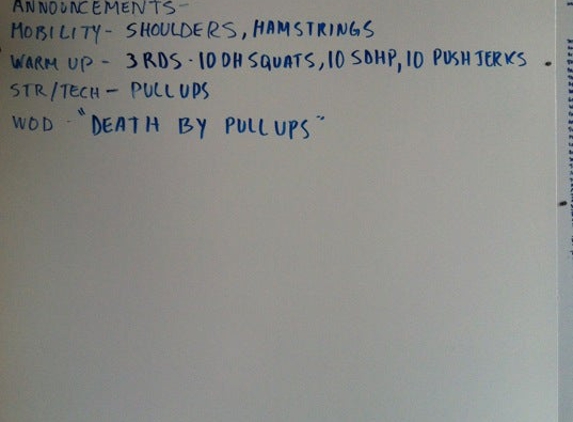 ANNOUNCEMENTS-
MOBILITY- SHOULDERS, HAMSTRINGS
WARM UP - 3 RDS - 10 OH SQUATS, 10 SDHP, 10 PUSH JERKS
STR/TECH - PULL UPS
WOD - "DEATH BY PULL UPS"